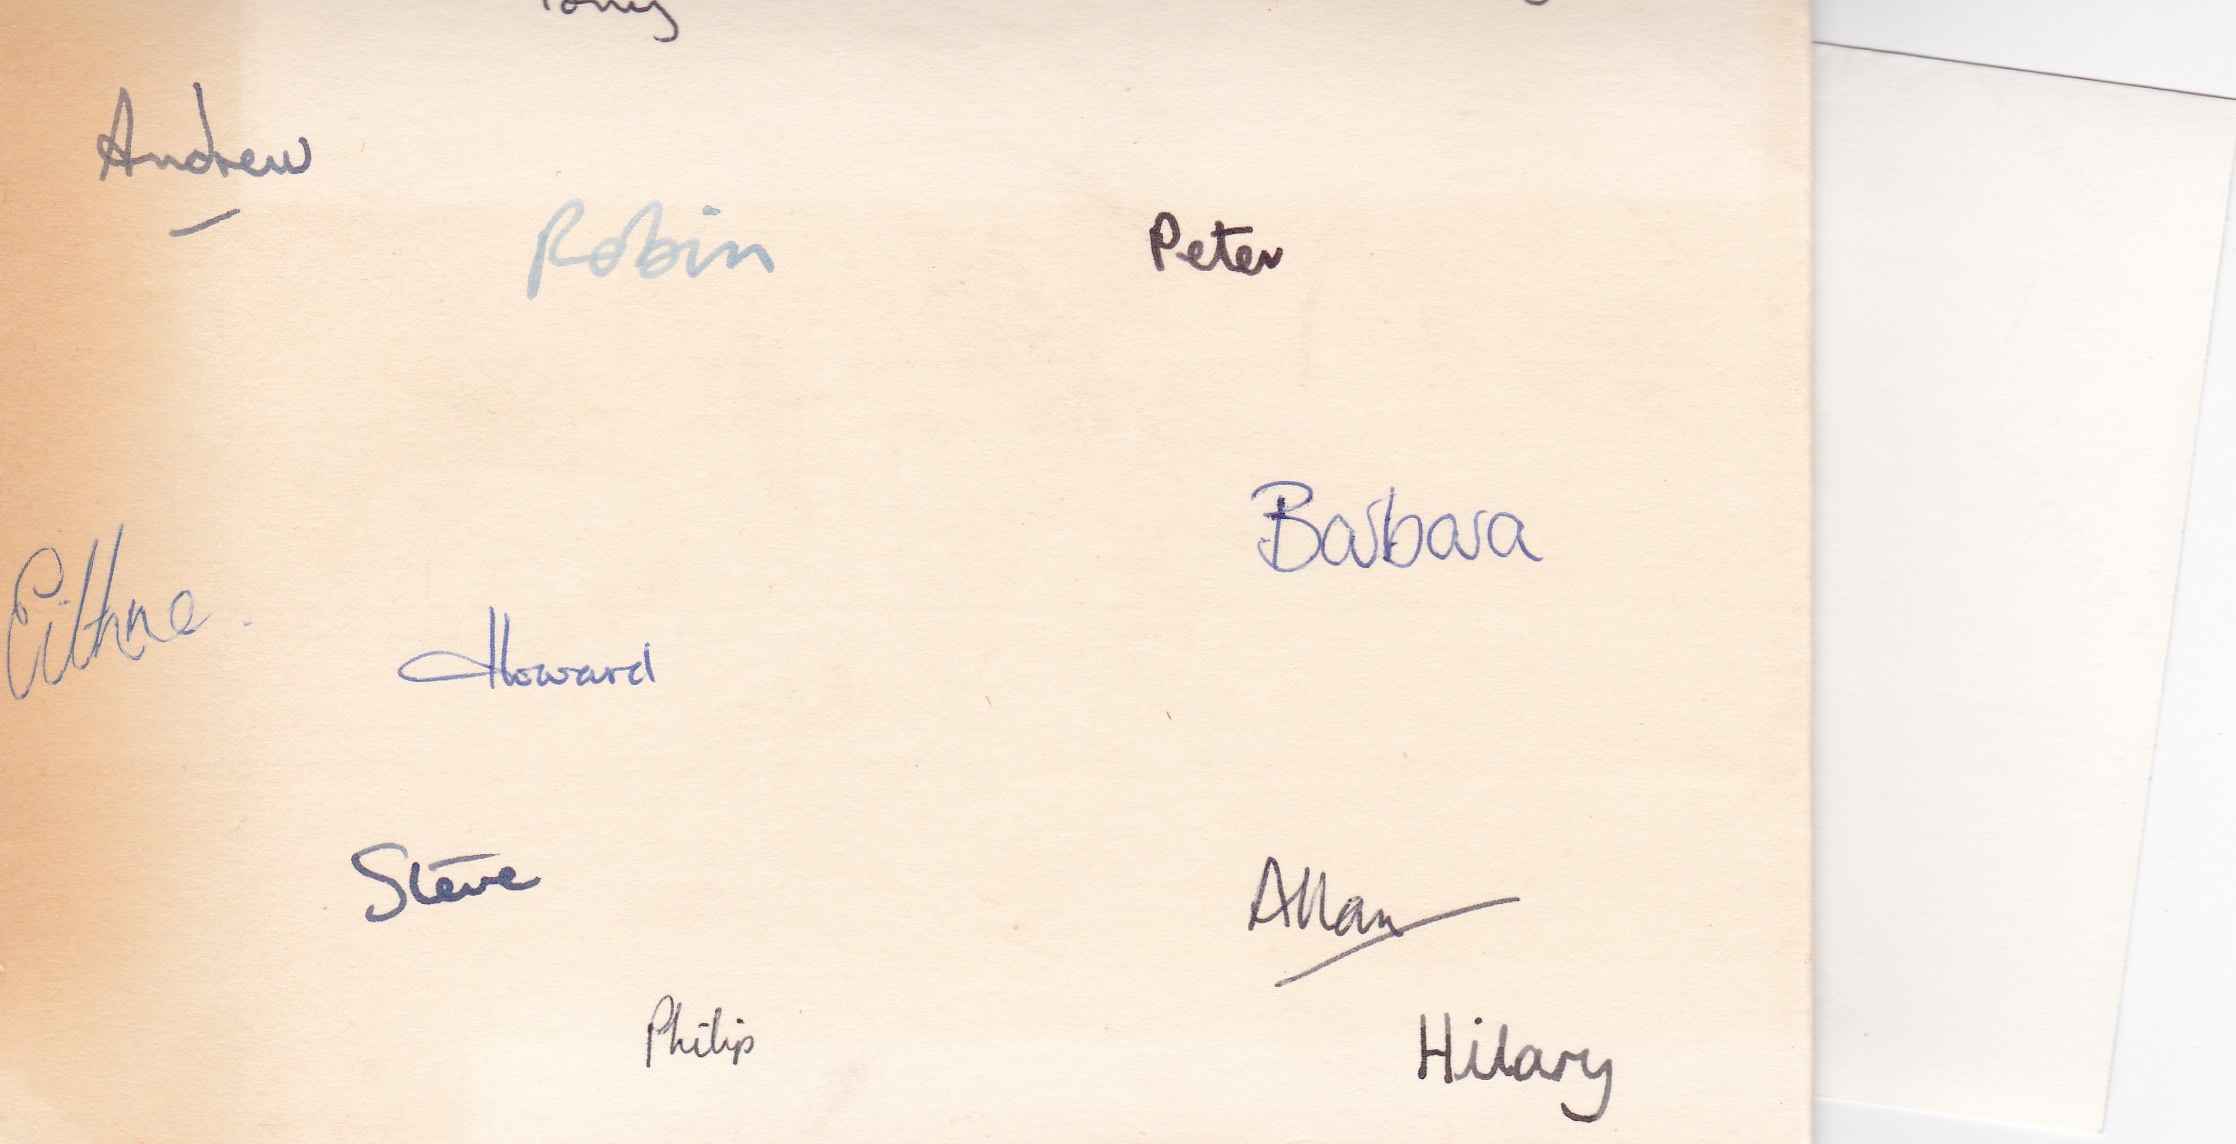 Tony
Andrew
Robin
Peter
Barbara
Eithne.
Howard
Steve
Allan
Philip
Hilary